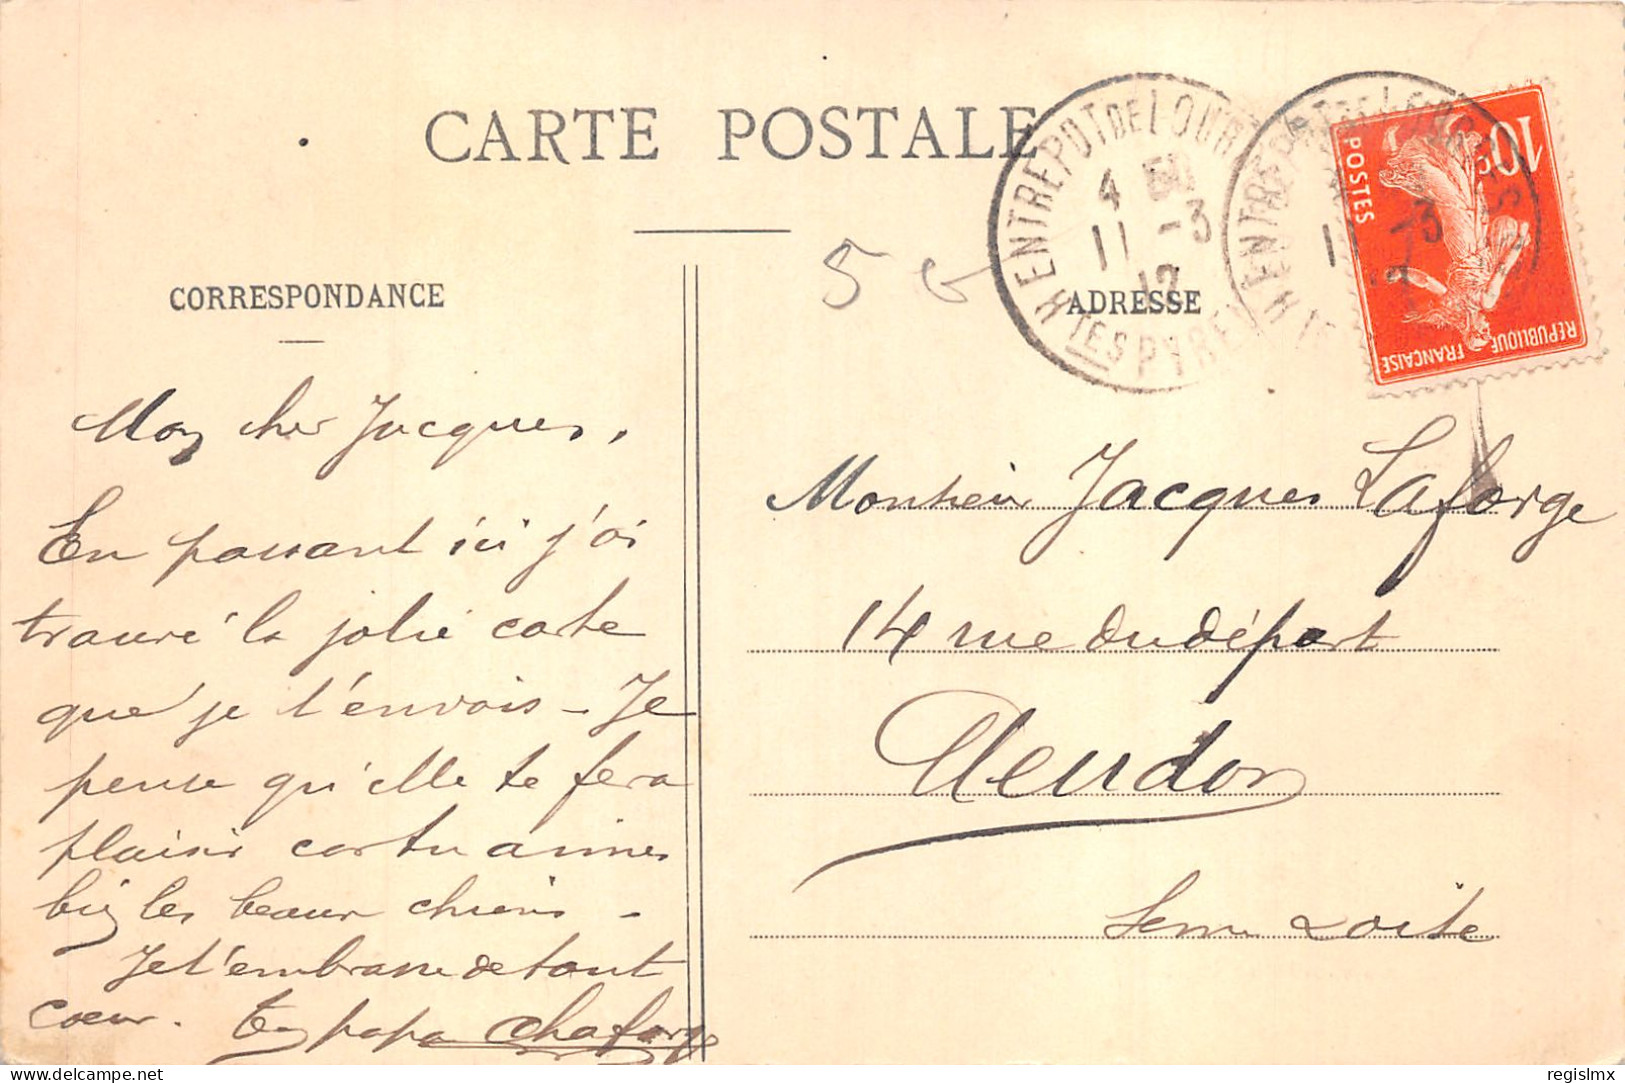 CARTE POSTALE
CORRESPONDANCE
ADRESSE
5 €
ENTREPOT DE LOURDES
4 50
11 -3
12
HTES PYRENEES
ENTREPOT DE LOURDES
11 -3
12
10c
POSTES
REPUBLIQUE FRANÇAISE
Mon cher Jacques,
En passant ici j'ai
trouvé la jolie carte
que je t'envois - Je
pense qu'elle te fera
plaisir car tu aimes
bien les beaux chiens -
Je t'embrasse de tout
coeur. Ton papa Lafarge
Monsieur Jacques Laforge
14 rue du départ
Meudon
Seine & Oise
delcampe.net
regislmx